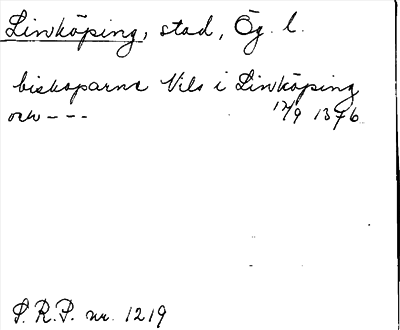 Linköping, stad, Ög. l.
biskoparna Nils i Linköping
och --- 17/9 1376
S.R.P. nr. 1219